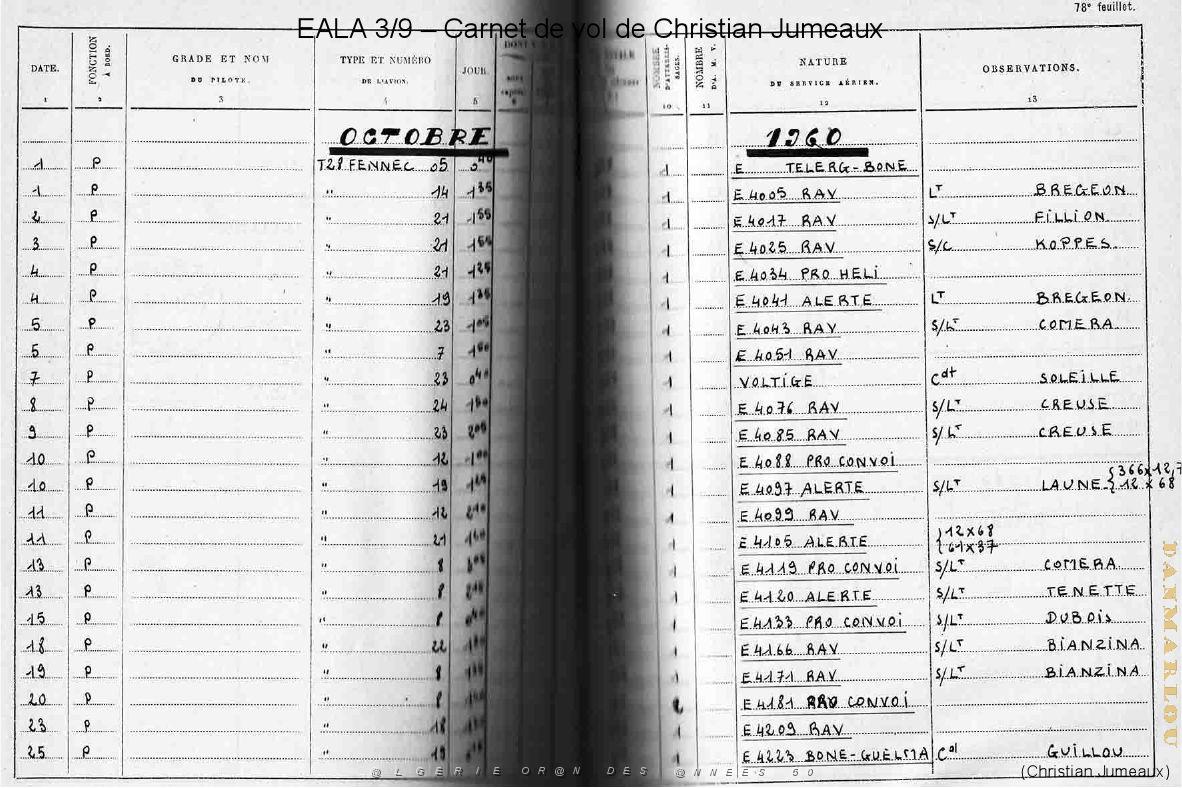 78e feuillet.
EALA 3/9 – Carnet de vol de Christian Jumeaux
DATE. FONCTION À BORD. GRADE ET NOM DU PILOTE. TYPE ET NUMÉRO DE L'AVION. JOUR. NOMBRE D'ATTERRISSAGES. NOMBRE D'A. M. V. NATURE DU SERVICE AÉRIEN. OBSERVATIONS.
1 2 3 4 5 10 11 12 13
OCTOBRE 1960
1 P T28 FENNEC 05 0 40 1 E TELERG-BONE
1 P " 14 1 35 1 E 4005 RAV LT BREGEON
2 P " 21 1 55 1 E 4017 RAV S/LT FILLION
3 P " 21 1 1 E 4025 RAV S/C KOPPES
4 P " 21 1 25 1 E 4034 PRO HELI
4 P " 19 1 35 1 E 4041 ALERTE LT BREGEON
5 P " 23 1 05 1 E 4043 RAV S/LT COMERA
5 P " 7 1 E 4051 RAV
7 P " 23 0 40 1 VOLTIGE Cdt SOLEILLE
8 P " 24 1 E 4076 RAV S/LT CREUSE
9 P " 23 2 05 1 E 4085 RAV S/LT CREUSE
10 P " 12 1 E 4088 PRO CONVOI
10 P " 19 1 E 4097 ALERTE S/LT LAUNE { 366 x 12,7
12 x 68
11 P " 12 1 E 4099 RAV
11 P " 21 1 E 4105 ALERTE { 12x68
61x37
13 P " 8 1 E 4119 PRO CONVOI S/LT COMERA
13 P " 8 1 E 4120 ALERTE S/LT TENETTE
15 P " 8 1 E 4133 PRO CONVOI S/LT DUBOIS
18 P " 22 1 E 4166 RAV S/LT BIANZINA
19 P " 8 1 E 4171 RAV S/LT BIANZINA
20 P " 8 2 E 4181 PRO CONVOI
23 P " 18 1 E 4209 RAV
25 P " 19 1 E 4223 BONE-GUELMA Col GUILLOU
DANMARLOU
@LGERIE OR@N DES @NNEES 50
(Christian Jumeaux)